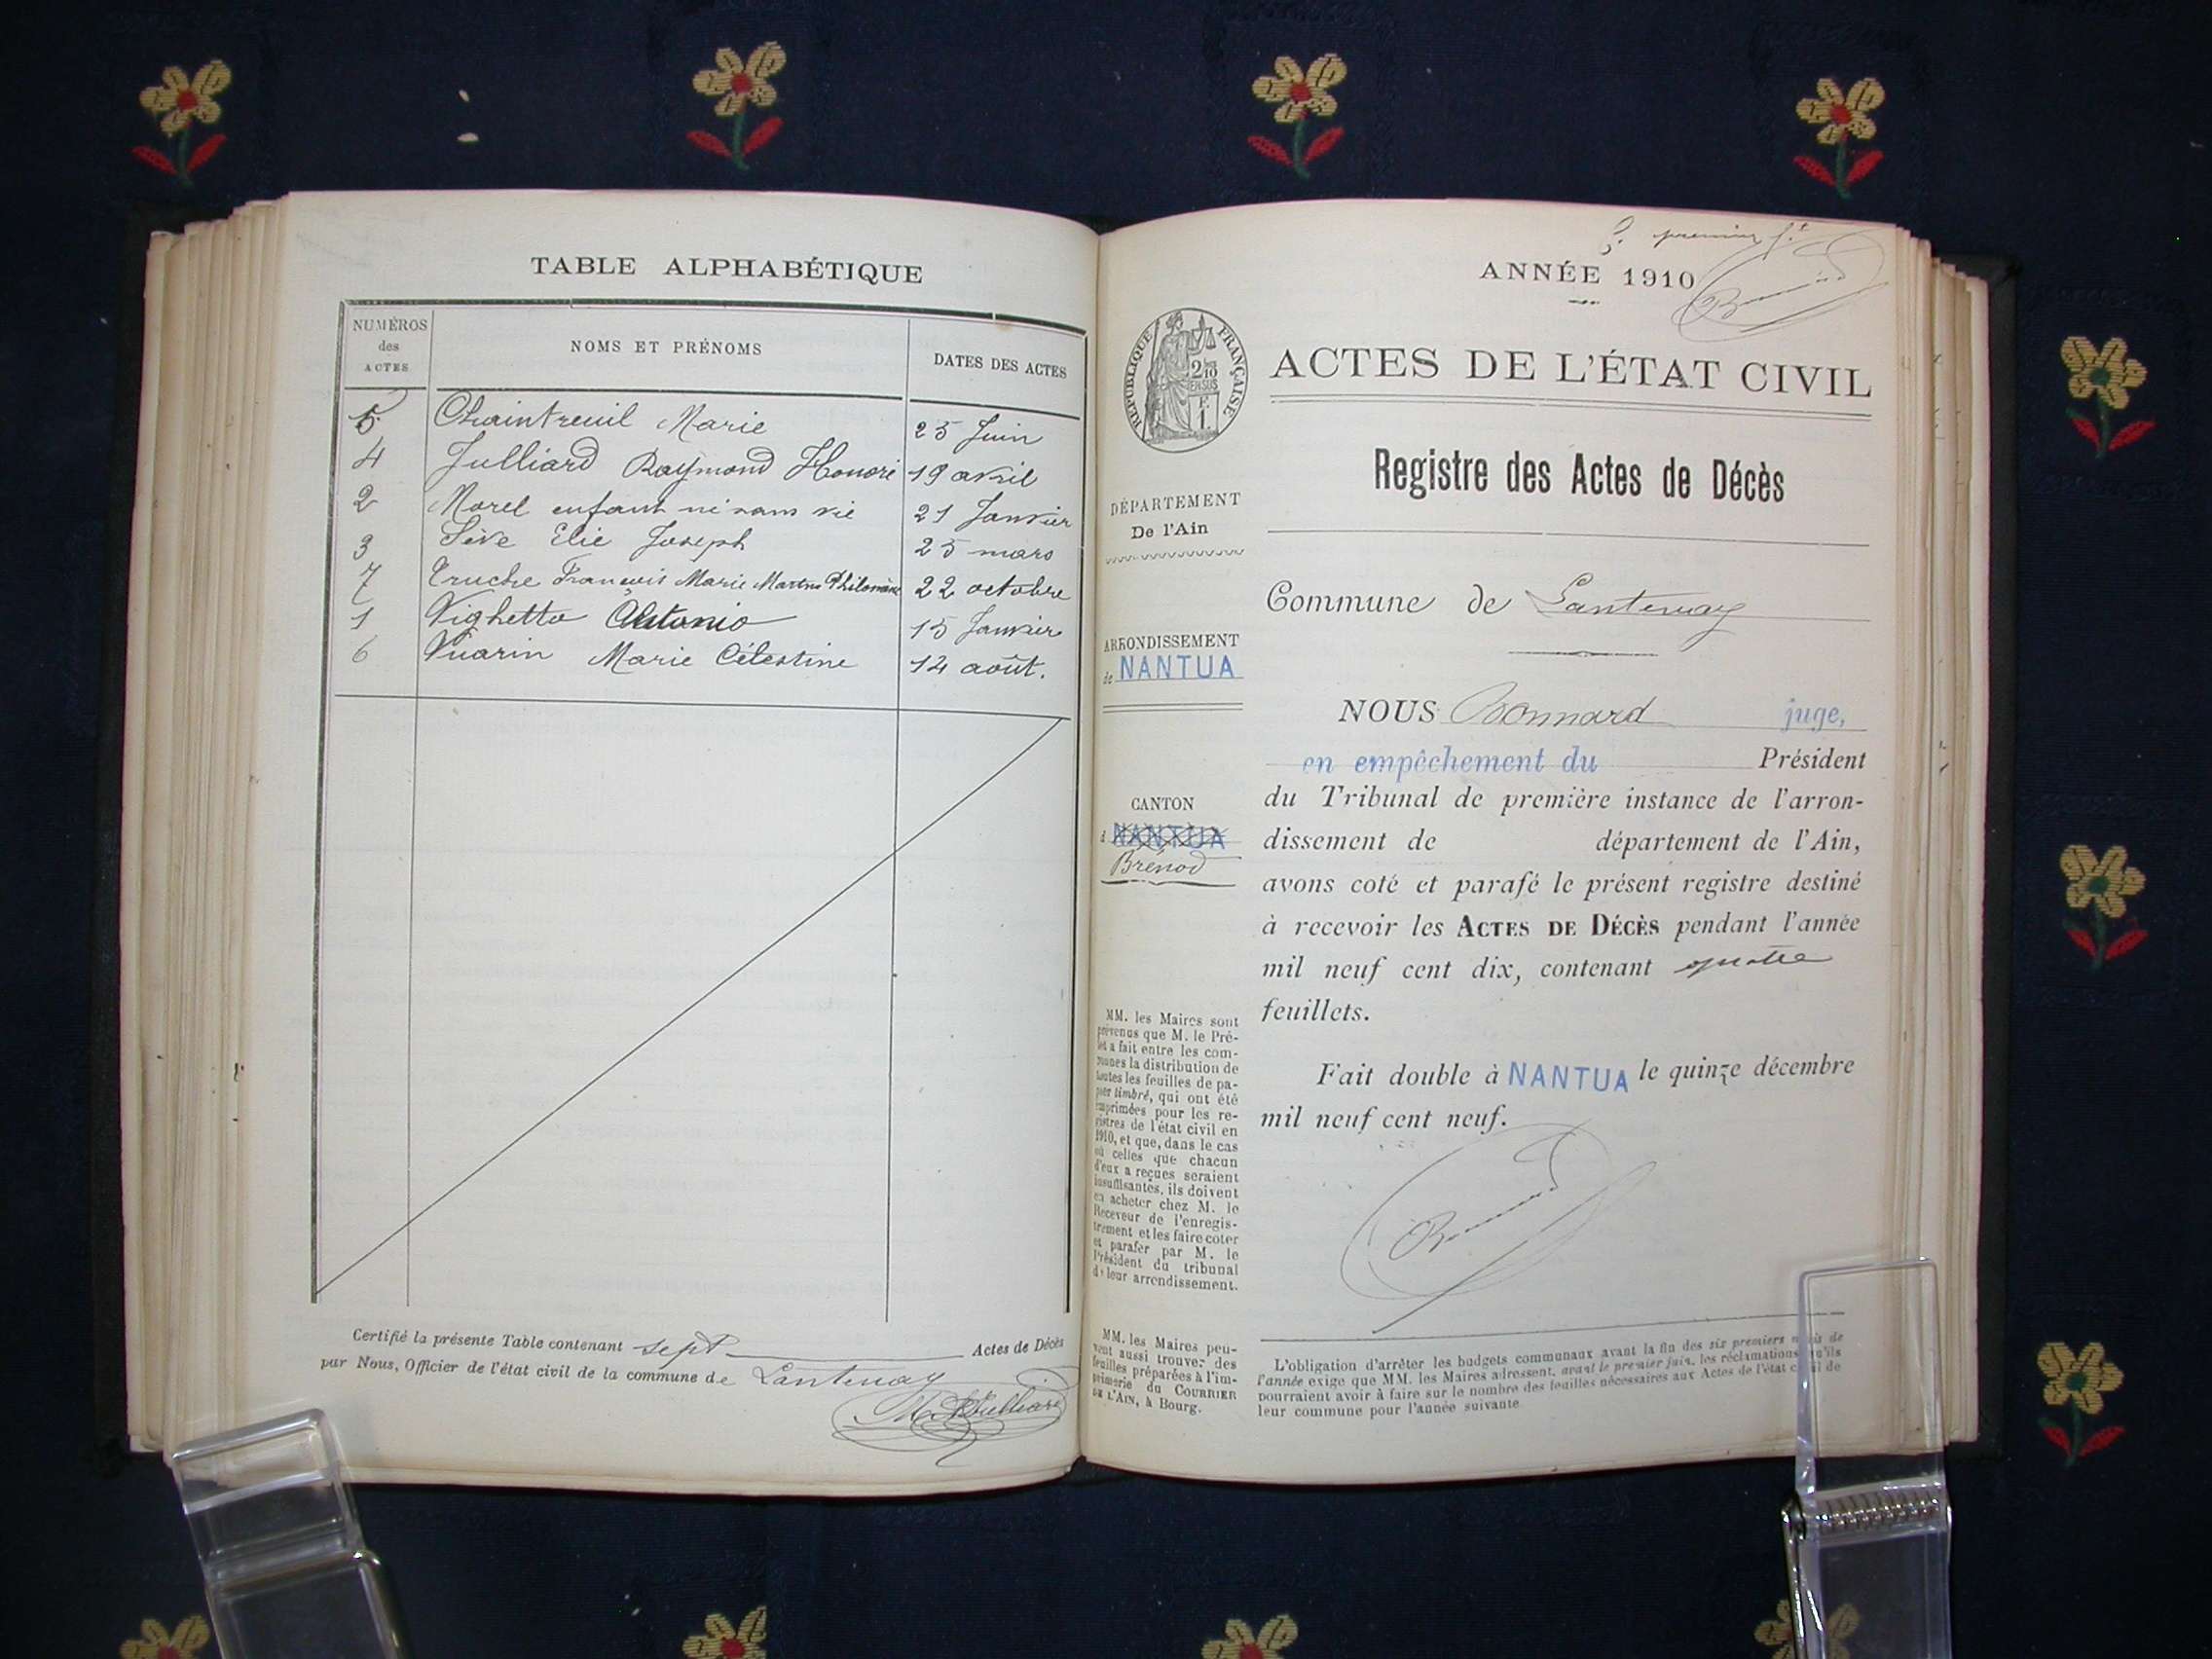 TABLE ALPHABÉTIQUE
NUMÉROS
des
ACTES
NOMS ET PRÉNOMS
DATES DES ACTES
5 Chaintreuil Marie 25 Juin
4 Julliard Raymond Honoré 19 avril
2 Morel enfant né sans vie 21 Janvier
3 Sève Elie Joseph 25 mars
7 Truche François Marie Philomène 22 octobre
1 Vighetto Antonio 15 Janvier
6 Vuarin Marie Célestine 14 août.
Certifié la présente Table contenant sept Actes de Décès
par Nous, Officier de l'état civil de la commune de Lantenay
Julliard
premier
ANNÉE 1910
RÉPUBLIQUE FRANÇAISE
ACTES DE L'ÉTAT CIVIL
Registre des Actes de Décès
DÉPARTEMENT
De l'Ain
Commune de Lantenay
ARRONDISSEMENT
de NANTUA
NOUS Bonnard juge,
en empêchement du Président
du Tribunal de première instance de l'arron-
dissement de département de l'Ain,
avons coté et parafé le présent registre destiné
à recevoir les ACTES DE DÉCÈS pendant l'année
mil neuf cent dix, contenant quatre
feuillets.
Fait double à NANTUA le quinze décembre
mil neuf cent neuf.
CANTON
d NANTUA
Brénod
MM. les Maires sont
prévenus que M. le Pré-
fet a fait entre les com-
munes la distribution de
toutes les feuilles de pa-
pier timbré, qui ont été
imprimées pour les re-
gistres de l'état civil en
1910, et que, dans le cas
où celles que chacun
d'eux a reçues seraient
insuffisantes, ils doivent
en acheter chez M. le
Receveur de l'enregis-
trement et les faire coter
et parafer par M. le
Président du tribunal
de leur arrondissement.
MM. les Maires peu-
vent aussi trouver des
feuilles préparées à l'im-
primerie du COURRIER
DE L'AIN, à Bourg.
L'obligation d'arrêter les budgets communaux avant la fin des six premiers mois de
l'année exige que MM. les Maires adressent, avant le premier juin, les réclamations qu'ils
pourraient avoir à faire sur le nombre des feuilles nécessaires aux Actes de l'état civil de
leur commune pour l'année suivante